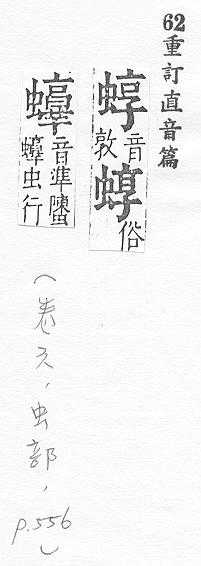 62重訂直音篇
蜳音敦
俗
音準螴
虫行
（卷六，虫部，p.556）